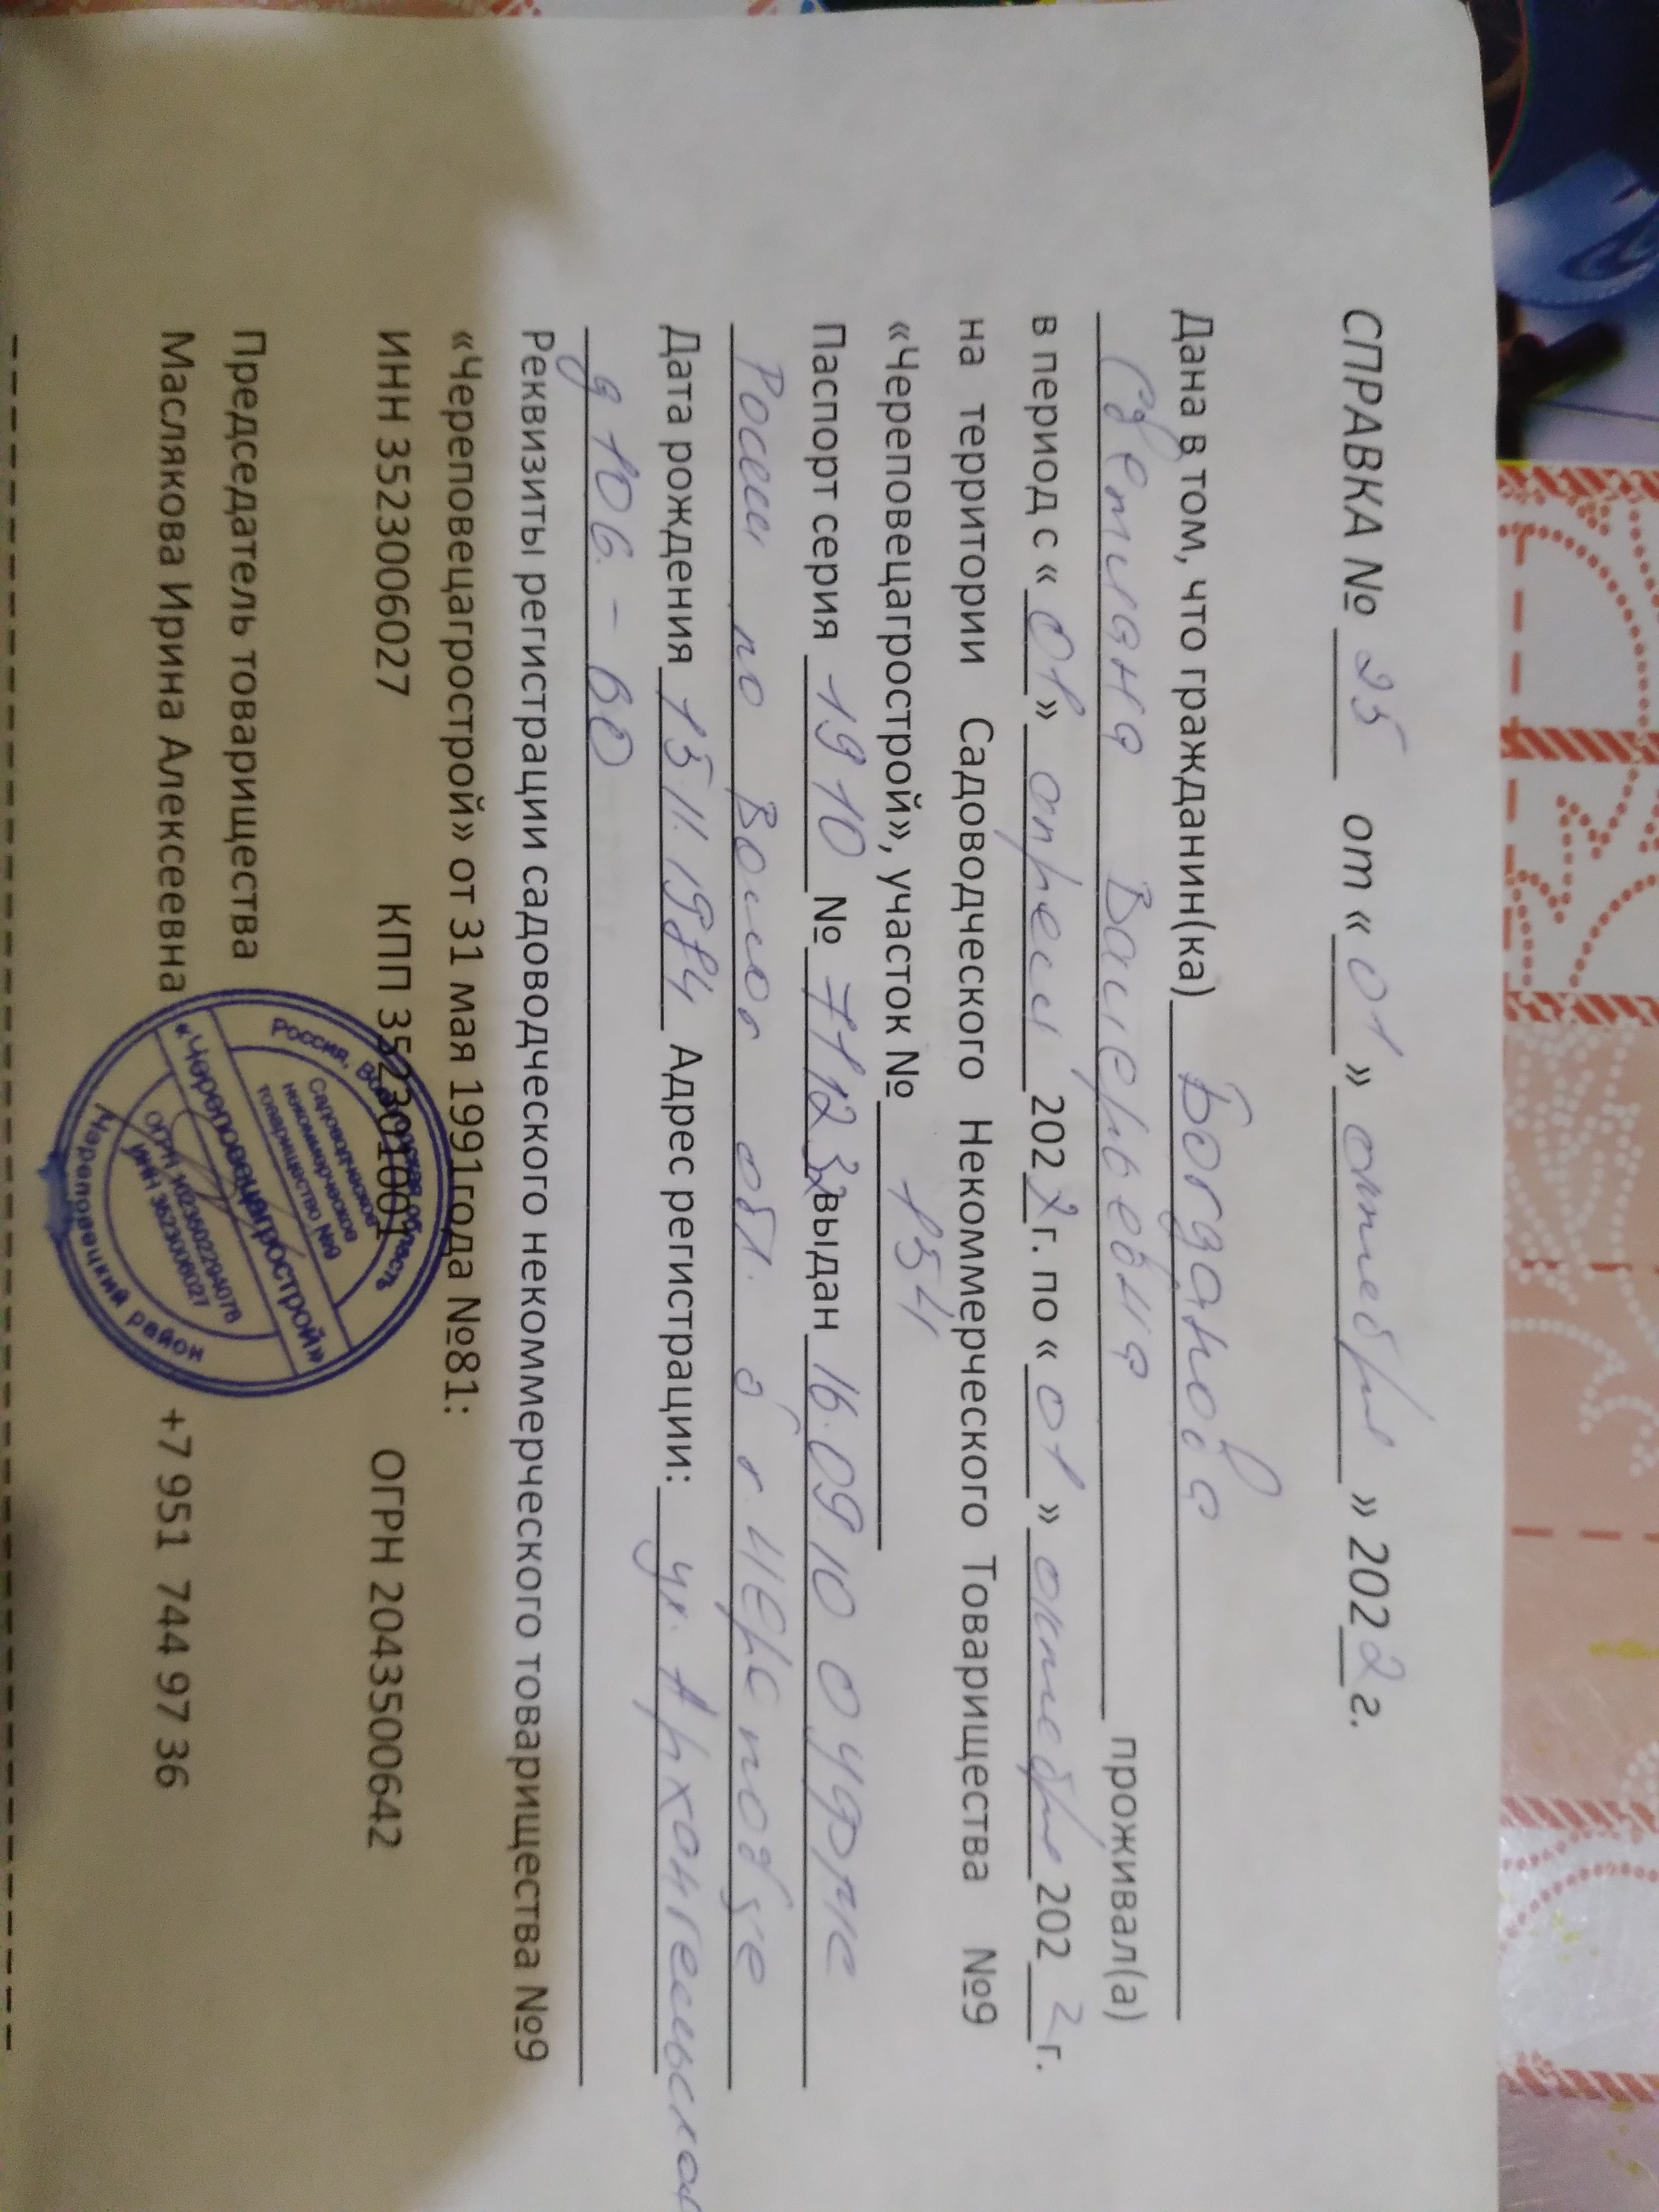 СПРАВКА № 25 от «01» октября» 2022г.
Дана в том, что гражданин(ка) Богданова
Светлана Валерьевна проживал(а)
в период с «01» апреля 2022г. по «01» октября 2022г.
на территории Садоводческого Некоммерческого Товарищества №9
«Череповецагрострой», участок № 154
Паспорт серия 1910 № выдан 16.09.10 ОУФМС
России по Волог обл. в г. Череповце
Дата рождения 15.11.1984 Адрес регистрации: ул. Архангельская
д 106. - 60
Реквизиты регистрации садоводческого некоммерческого товарищества №9
«Череповецагрострой» от 31 мая 1991года №81:
ИНН 3523006027 КПП 352301001 ОГРН 2043500642
Председатель товарищества
Маслякова Ирина Алексеевна +7 951 744 97 36
Россия, Вологодская область
Садоводческое
некоммерческое
товарищество №9
«Череповецагрострой»
ОГРН 1023502294078
ИНН 3523006027
Череповецкий район